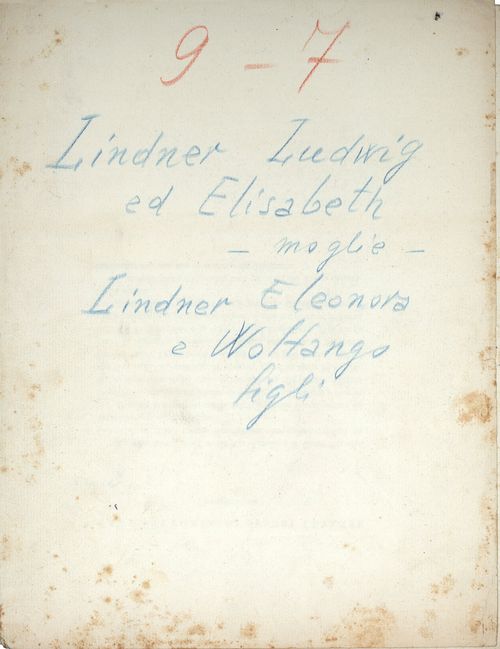 9 - 7
Lindner Ludwig
ed Elisabeth
- moglie -
Lindner Eleonora
e Wolfango
figli